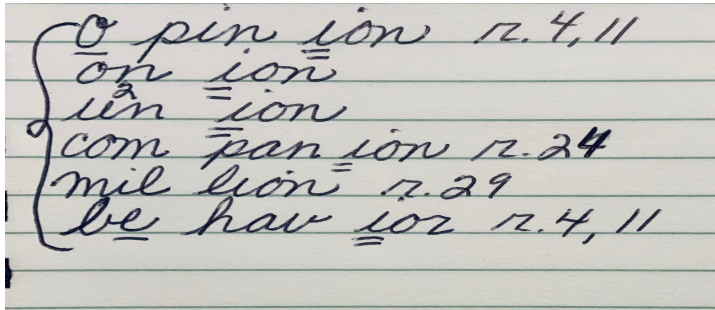 o pin ion r. 4, 11
on ion
un 2 ion
com pan ion r. 24
mil lion r. 29
be hav ior r. 4, 11